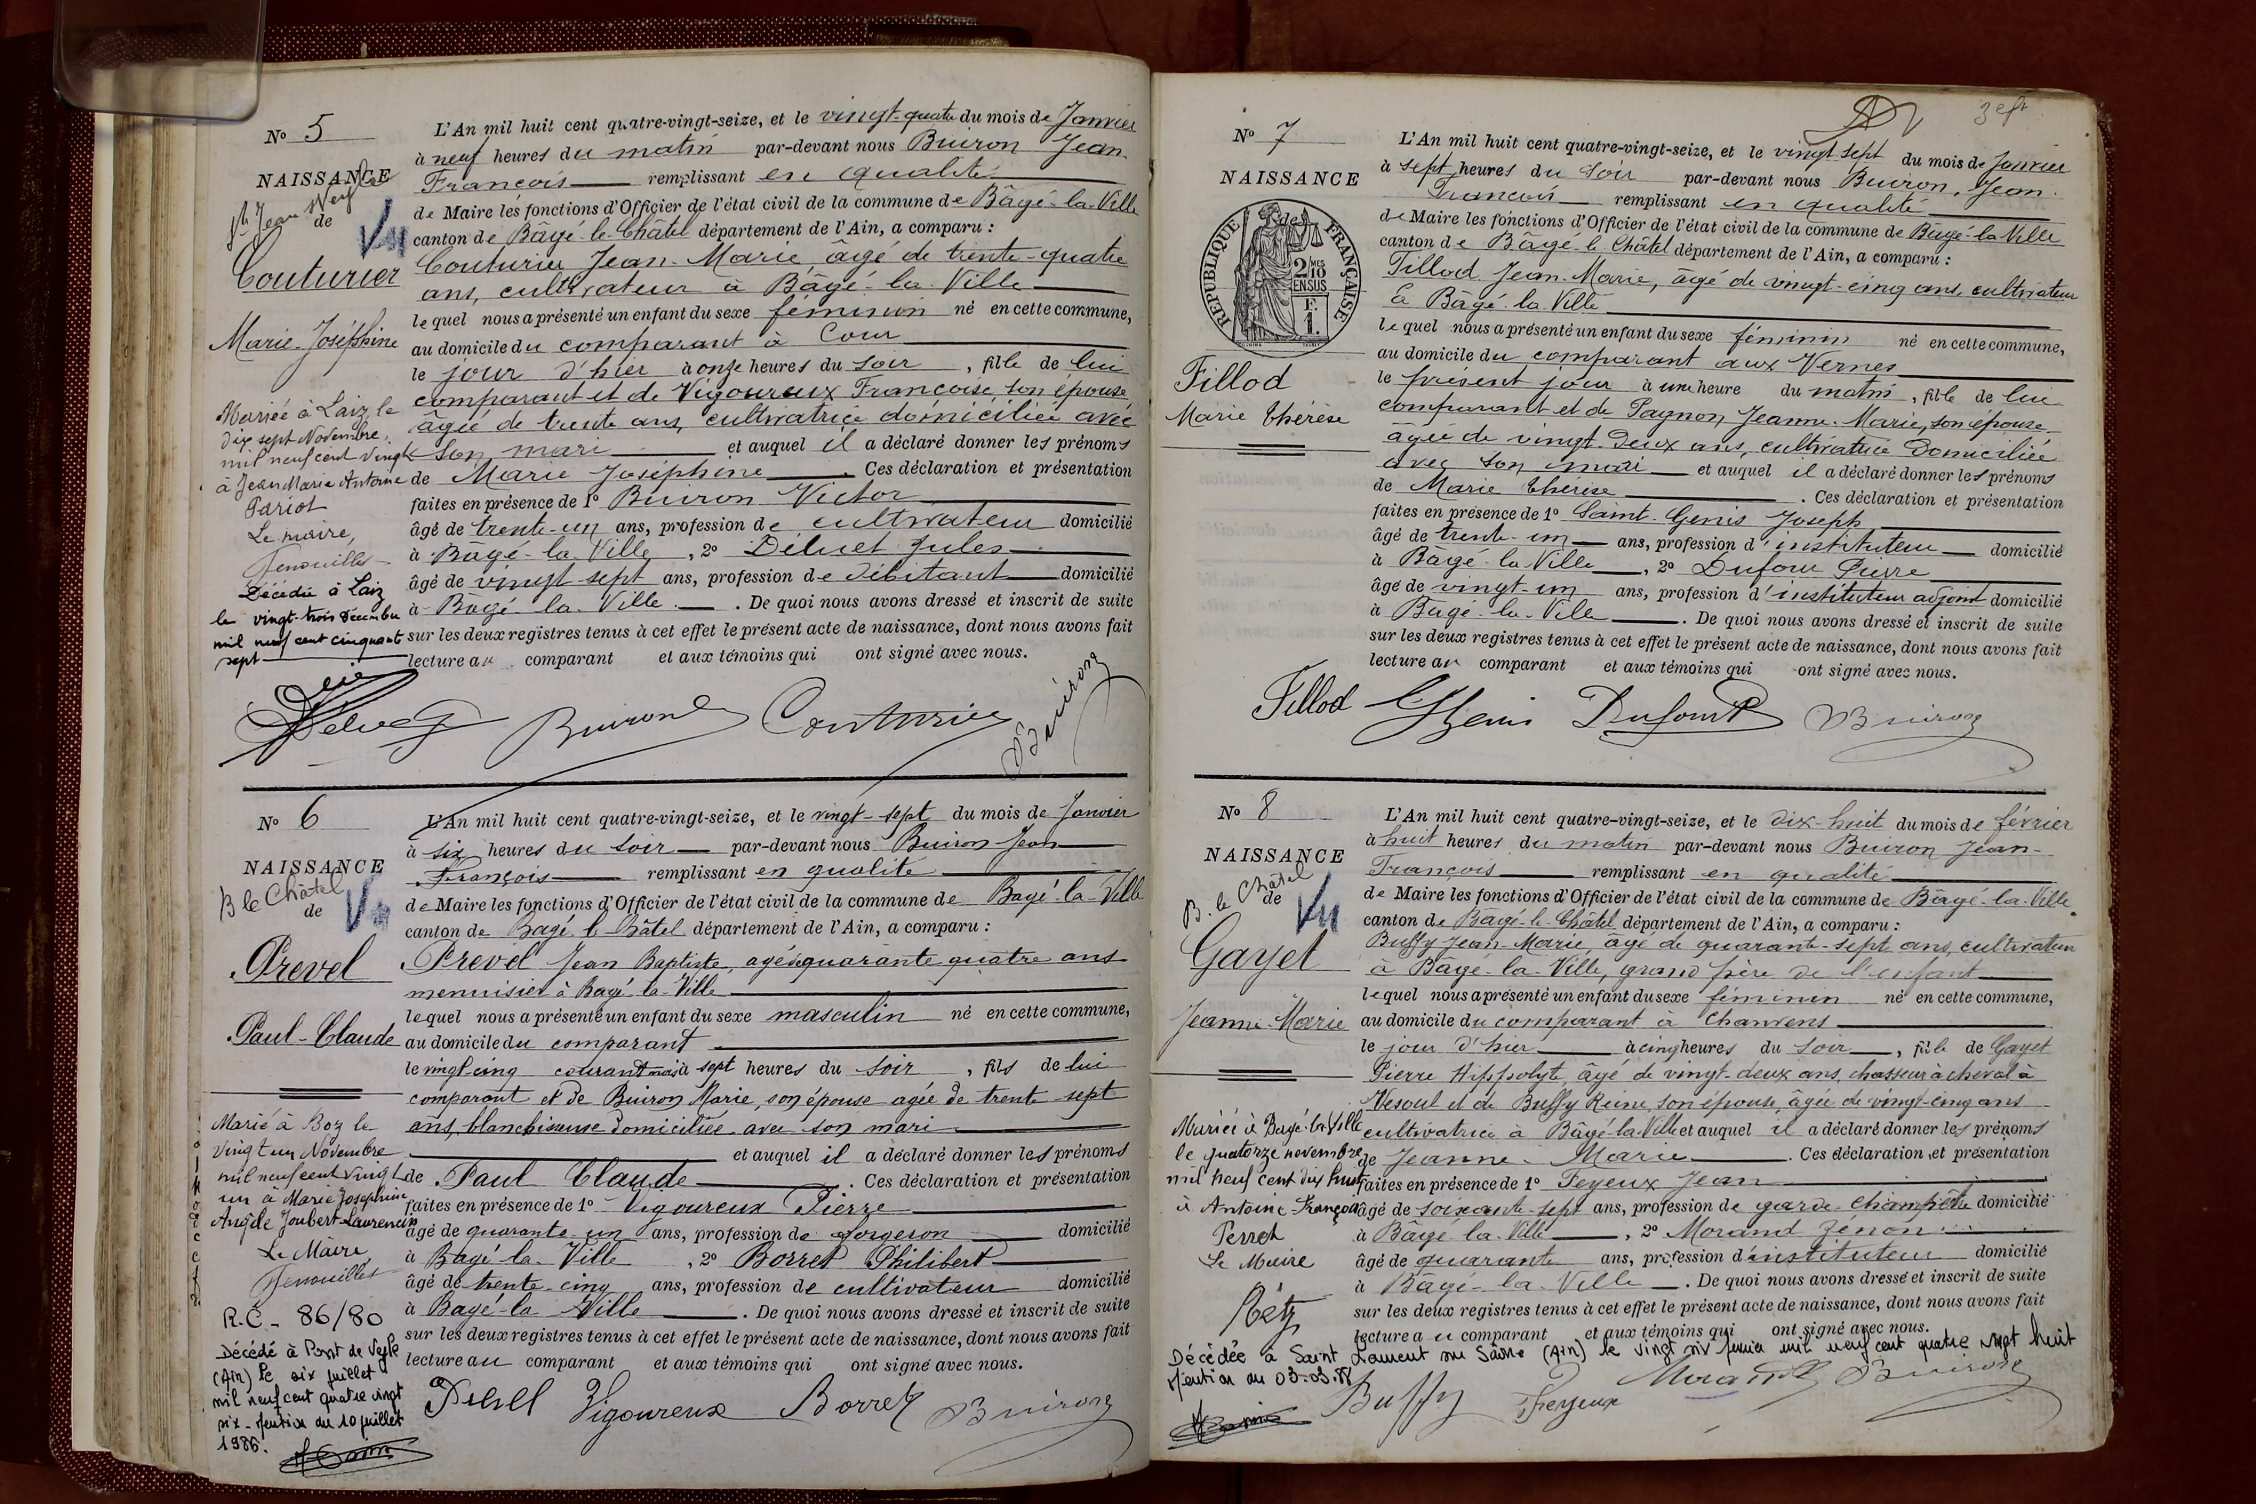 No 5
NAISSANCE
St Jean s/ Veyle
de
Vu
Couturier
Marie-Joséphine
Mariée à Laiz le
dix sept Novembre
mil neuf cent vingt
à Jean Marie Antoine
Pariot
Le maire,
Décédée à Laiz
le vingt-trois Décembre
mil neuf cent cinquante
sept
L'An mil huit cent quatre-vingt-seize, et le vingt-quatre du mois de Janvier
à neuf heures du matin par-devant nous Buiron Jean
François remplissant en qualité
de Maire les fonctions d'Officier de l'état civil de la commune de Bâgé-la-Ville
canton de Bâgé-le-Châtel département de l'Ain, a comparu :
Couturier Jean-Marie, âgé de trente-quatre
ans, cultivateur à Bâgé-la-Ville
lequel nous a présenté un enfant du sexe féminin né en cette commune,
au domicile du comparant à Cour
le jour d'hier à onze heures du soir, fille de lui
comparant et de Vigoureux Françoise, son épouse
âgée de trente ans, cultivatrice domiciliée avec
son mari et auquel il a déclaré donner les prénoms
de Marie Joséphine. Ces déclaration et présentation
faites en présence de 1o Buiron Victor
âgé de trente-un ans, profession de cultivateur domicilié
à Bâgé-la-Ville, 2o Déluet Jules
âgé de vingt sept ans, profession de débitant domicilié
à Bâgé-la-Ville. De quoi nous avons dressé et inscrit de suite
sur les deux registres tenus à cet effet le présent acte de naissance, dont nous avons fait
lecture au comparant et aux témoins qui ont signé avec nous.
Buiron Couturier Buiron
No 6
NAISSANCE
B le Châtel
de
Vu
Prevel
Paul-Claude
Marié à Boz le
vingt un Novembre
mil neuf cent vingt
un à Marie Josephine
Angèle Joubert-Laurencin
Le Maire
R.C- 86/80
Décédé à Pont de Veyle
(Ain) le six juillet
mil neuf cent quatre vingt
six - mention du 10 juillet
1986.
L'An mil huit cent quatre-vingt-seize, et le vingt-sept du mois de Janvier
à six heures du soir par-devant nous Buiron Jean
François remplissant en qualité
de Maire les fonctions d'Officier de l'état civil de la commune de Bagé-la-Ville
canton de Bagé-le-Châtel département de l'Ain, a comparu :
Prevel Jean Baptiste, agé de quarante quatre ans
menuisier à Bagé-la-Ville
lequel nous a présenté un enfant du sexe masculin né en cette commune,
au domicile du comparant
le vingt cinq courant mois à sept heures du soir, fils de lui
comparant et de Buiron Marie, son épouse agée de trente sept
ans, blanchisseuse domiciliée avec son mari
et auquel il a déclaré donner les prénoms
de Paul Claude. Ces déclaration et présentation
faites en présence de 1o Vigoureux Pierre
âgé de quarante un ans, profession de forgeron domicilié
à Bagé-la-Ville, 2o Borret Philibert
âgé de trente cinq ans, profession de cultivateur domicilié
à Bagé-la-Ville. De quoi nous avons dressé et inscrit de suite
sur les deux registres tenus à cet effet le présent acte de naissance, dont nous avons fait
lecture au comparant et aux témoins qui ont signé avec nous.
Prevel Vigoureux Borret Buiron
No 7
NAISSANCE
de
RÉPUBLIQUE FRANÇAISE
2 MES 10
EN SUS
F.
1.
Fillod
Marie Thérèse
L'An mil huit cent quatre-vingt-seize, et le vingt sept du mois de Janvier
à sept heures du soir par-devant nous Buiron, Jean
François remplissant en qualité
de Maire les fonctions d'Officier de l'état civil de la commune de Bâgé-la-Ville
canton de Bâgé-le-Châtel département de l'Ain, a comparu :
Fillod Jean-Marie, âgé de vingt-cinq ans, cultivateur
à Bâgé-la-Ville
lequel nous a présenté un enfant du sexe féminin né en cette commune,
au domicile du comparant aux Vernes
le présent jour à une heure du matin, fille de lui
comparant et de Pagnon Jeanne-Marie, son épouse
âgée de vingt-deux ans, cultivatrice domiciliée
avec son mari et auquel il a déclaré donner les prénoms
de Marie Thérèse. Ces déclaration et présentation
faites en présence de 1o Saint-Genis Joseph
âgé de trente-un ans, profession d'instituteur domicilié
à Bâgé-la-Ville, 2o Dufour Pierre
âgé de vingt-un ans, profession d'instituteur adjoint domicilié
à Bâgé-la-Ville. De quoi nous avons dressé et inscrit de suite
sur les deux registres tenus à cet effet le présent acte de naissance, dont nous avons fait
lecture au comparant et aux témoins qui ont signé avec nous.
Fillod StGenis Dufour P Buiron
No 8
NAISSANCE
B. le Châtel
de
Vu
Gayet
Jeanne-Marie
Mariée à Bagé-la-Ville
le quatorze novembre
mil neuf cent dix huit
à Antoine François
Perret
Le Maire
L'An mil huit cent quatre-vingt-seize, et le dix-huit du mois de février
à huit heures du matin par-devant nous Buiron Jean-
François remplissant en qualité
de Maire les fonctions d'Officier de l'état civil de la commune de Bâgé-la-Ville
canton de Bâgé-le-Châtel département de l'Ain, a comparu :
Buffy Jean-Marie, âgé de quarante-sept ans, cultivateur
à Bâgé-la-Ville, grand père de l'enfant
lequel nous a présenté un enfant du sexe féminin né en cette commune,
au domicile du comparant à Chanvens
le jour d'hier à cinq heures du soir, fille de Gayet
Pierre Hippolyte, âgé de vingt-deux ans, chasseur à cheval à
Vesoul et de Buffy Reine, son épouse, âgée de vingt-cinq ans
cultivatrice à Bâgé-la-Ville et auquel il a déclaré donner les prénoms
de Jeanne-Marie. Ces déclaration et présentation
faites en présence de 1o Feyeux Jean
âgé de soixante-sept ans, profession de garde-champêtre domicilié
à Bâgé-la-Ville, 2o Morand Zénon
âgé de quarante ans, profession d'instituteur domicilié
à Bâgé-la-Ville. De quoi nous avons dressé et inscrit de suite
sur les deux registres tenus à cet effet le présent acte de naissance, dont nous avons fait
lecture au comparant et aux témoins qui ont signé avec nous.
Décédée à Saint Laurent sur Saône (Ain) le vingt six février mil neuf cent quatre vingt huit
mention du 03.03.88
Buffy Feyeux Morand Buiron